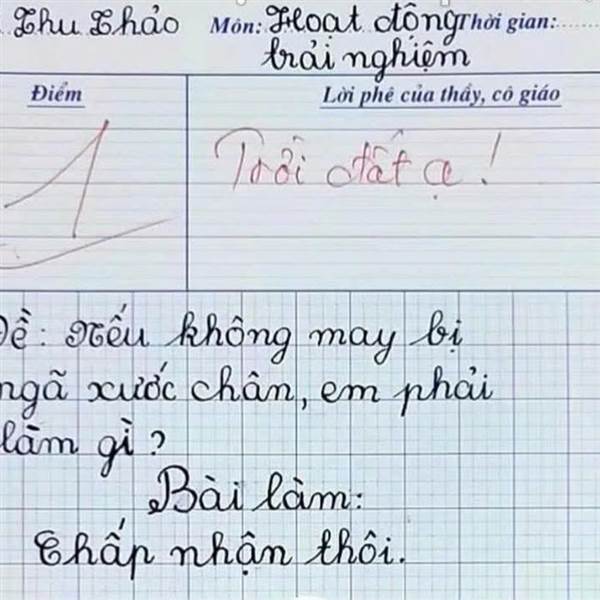 Thu Thảo Môn: Hoạt động Thời gian:........
trải nghiệm
Điểm Lời phê của thầy, cô giáo
1 Trời đất ạ!
Đề: Nếu không may bị
ngã xước chân, em phải
làm gì?
Bài làm:
Chấp nhận thôi.